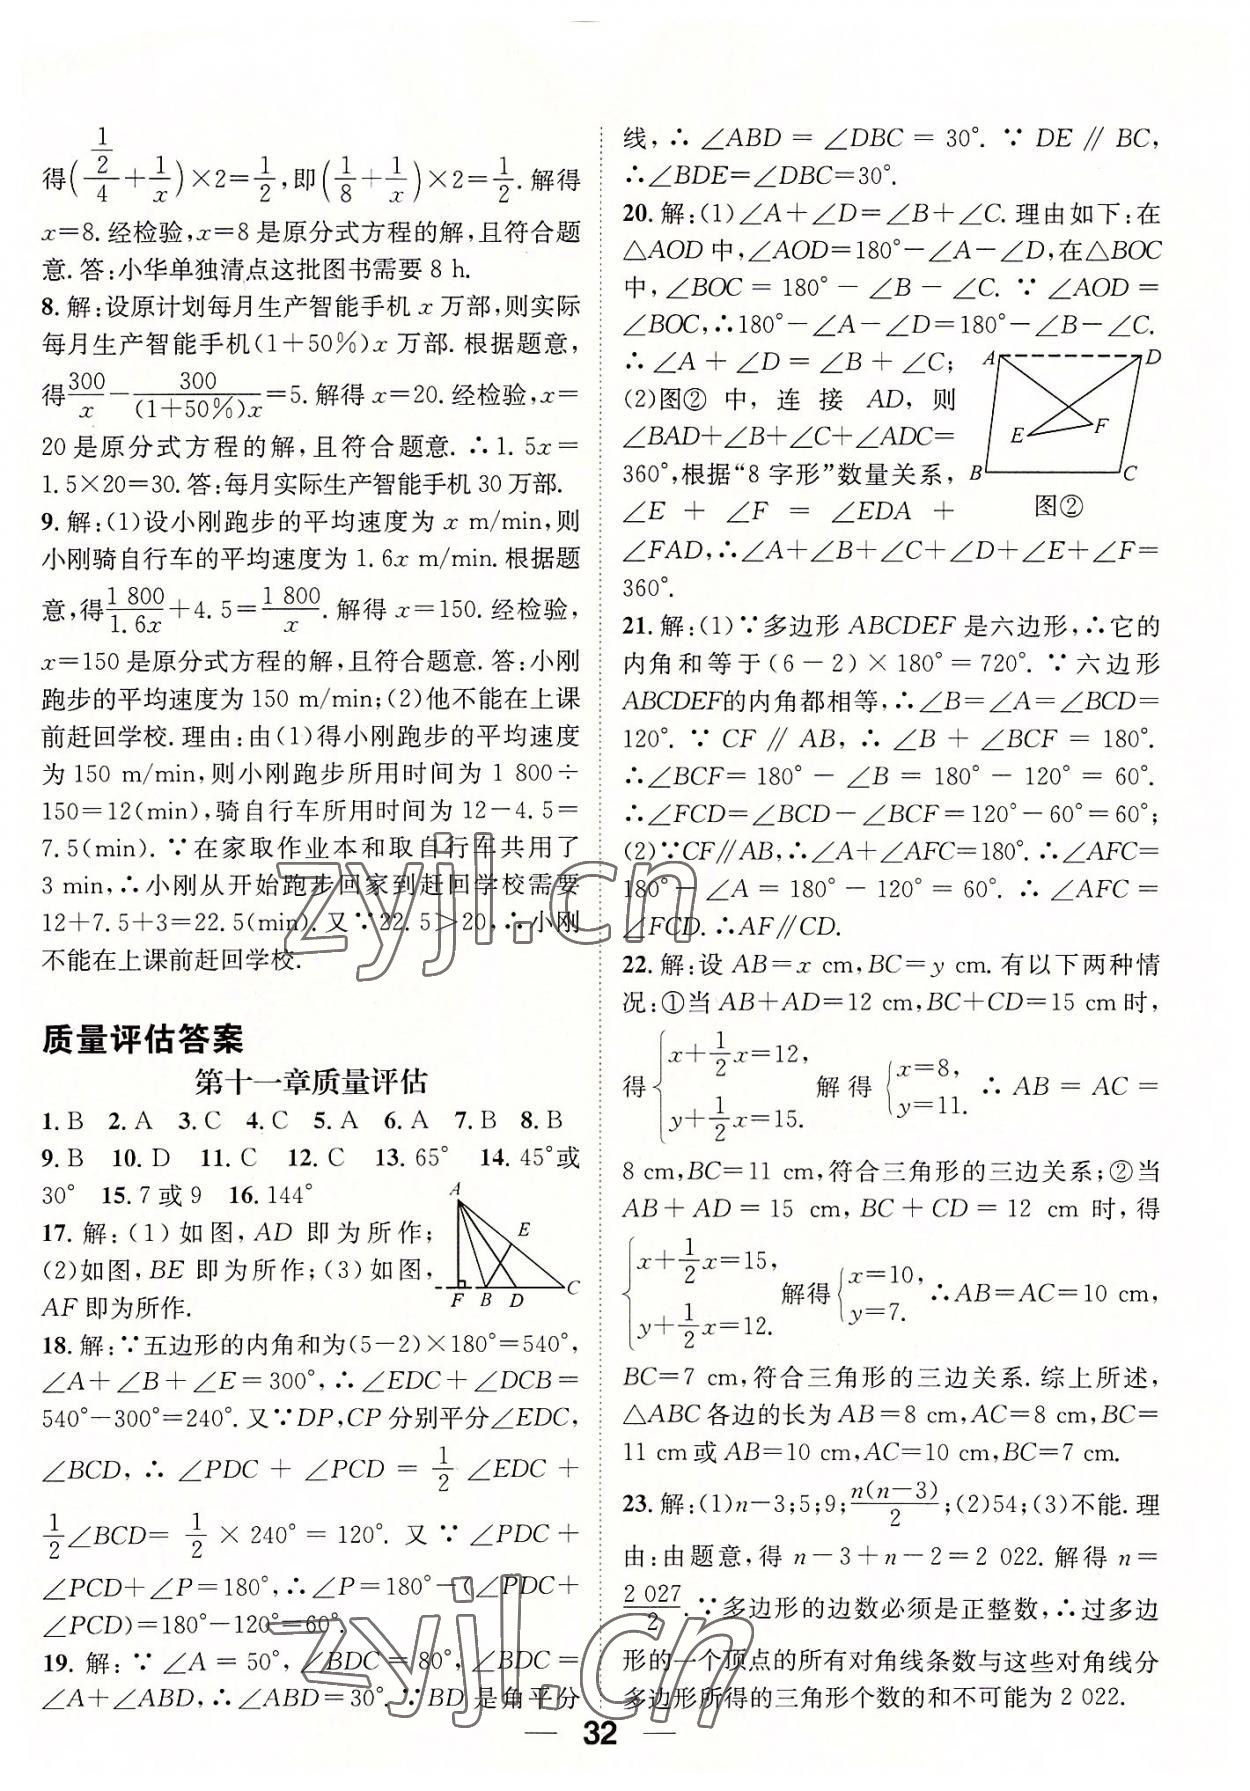 得(1/2/4+1/x)×2=1/2,即(1/8+1/x)×2=1/2.解得
x=8.经检验,x=8是原分式方程的解,且符合题
意.答:小华单独清点这批图书需要8 h.
8.解:设原计划每月生产智能手机x万部,则实际
每月生产智能手机(1+50%)x万部.根据题意,
得300/x-300/(1+50%)x=5.解得x=20.经检验,x=
20是原分式方程的解,且符合题意.∴1.5x=
1.5×20=30.答:每月实际生产智能手机30万部.
9.解:(1)设小刚跑步的平均速度为x m/min,则
小刚骑自行车的平均速度为1.6x m/min.根据题
意,得1 800/1.6x+4.5=1 800/x.解得x=150.经检验,
x=150是原分式方程的解,且符合题意.答:小刚
跑步的平均速度为150 m/min;(2)他不能在上课
前赶回学校.理由:由(1)得小刚跑步的平均速度
为150 m/min,则小刚跑步所用时间为1 800÷
150=12(min),骑自行车所用时间为12-4.5=
7.5(min).∵在家取作业本和取自行车共用了
3 min,∴小刚从开始跑步回家到赶回学校需要
12+7.5+3=22.5(min).又∵22.5>20,∴小刚
不能在上课前赶回学校.
质量评估答案
第十一章质量评估
1.B 2.A 3.C 4.C 5.A 6.A 7.B 8.B
9.B 10.D 11.C 12.C 13.65° 14.45°或
30° 15.7或9 16.144°
17.解:(1)如图,AD即为所作;
(2)如图,BE即为所作;(3)如图,
AF即为所作.
A
E
F B D C
18.解:∵五边形的内角和为(5-2)×180°=540°,
∠A+∠B+∠E=300°,∴∠EDC+∠DCB=
540°-300°=240°.又∵DP,CP分别平分∠EDC,
∠BCD,∴∠PDC+∠PCD=1/2∠EDC+
1/2∠BCD=1/2×240°=120°.又∵∠PDC+
∠PCD+∠P=180°,∴∠P=180°-(∠PDC+
∠PCD)=180°-120°=60°.
19.解:∵∠A=50°,∠BDC=80°,∠BDC=
∠A+∠ABD,∴∠ABD=30°.∵BD是角平分
线,∴∠ABD=∠DBC=30°.∵DE∥BC,
∴∠BDE=∠DBC=30°.
20.解:(1)∠A+∠D=∠B+∠C.理由如下:在
△AOD中,∠AOD=180°-∠A-∠D,在△BOC
中,∠BOC=180°-∠B-∠C.∵∠AOD=
∠BOC,∴180°-∠A-∠D=180°-∠B-∠C.
∴∠A+∠D=∠B+∠C;
(2)图②中,连接AD,则
∠BAD+∠B+∠C+∠ADC=
360°,根据“8字形”数量关系,
∠E+∠F=∠EDA+
∠FAD,∴∠A+∠B+∠C+∠D+∠E+∠F=
360°.
A D
E F
B C
图②
21.解:(1)∵多边形ABCDEF是六边形,∴它的
内角和等于(6-2)×180°=720°.∵六边形
ABCDEF的内角都相等,∴∠B=∠A=∠BCD=
120°.∵CF∥AB,∴∠B+∠BCF=180°.
∴∠BCF=180°-∠B=180°-120°=60°.
∴∠FCD=∠BCD-∠BCF=120°-60°=60°;
(2)∵CF∥AB,∴∠A+∠AFC=180°.∴∠AFC=
180°-∠A=180°-120°=60°.∴∠AFC=
∠FCD.∴AF∥CD.
22.解:设AB=x cm,BC=y cm.有以下两种情
况:①当AB+AD=12 cm,BC+CD=15 cm时,
得{x+1/2x=12, y+1/2x=15. 解得{x=8, y=11. ∴AB=AC=
8 cm,BC=11 cm,符合三角形的三边关系;②当
AB+AD=15 cm,BC+CD=12 cm时,得
{x+1/2x=15, y+1/2x=12. 解得{x=10, y=7. ∴AB=AC=10 cm,
BC=7 cm,符合三角形的三边关系.综上所述,
△ABC各边的长为AB=8 cm,AC=8 cm,BC=
11 cm或AB=10 cm,AC=10 cm,BC=7 cm.
23.解:(1)n-3;5;9;n(n-3)/2;(2)54;(3)不能.理
由:由题意,得n-3+n-2=2 022.解得n=
2 027/2.∵多边形的边数必须是正整数,∴过多边
形的一个顶点的所有对角线条数与这些对角线分
多边形所得的三角形个数的和不可能为2 022.
32
zyjl.cn
zyjl.cn